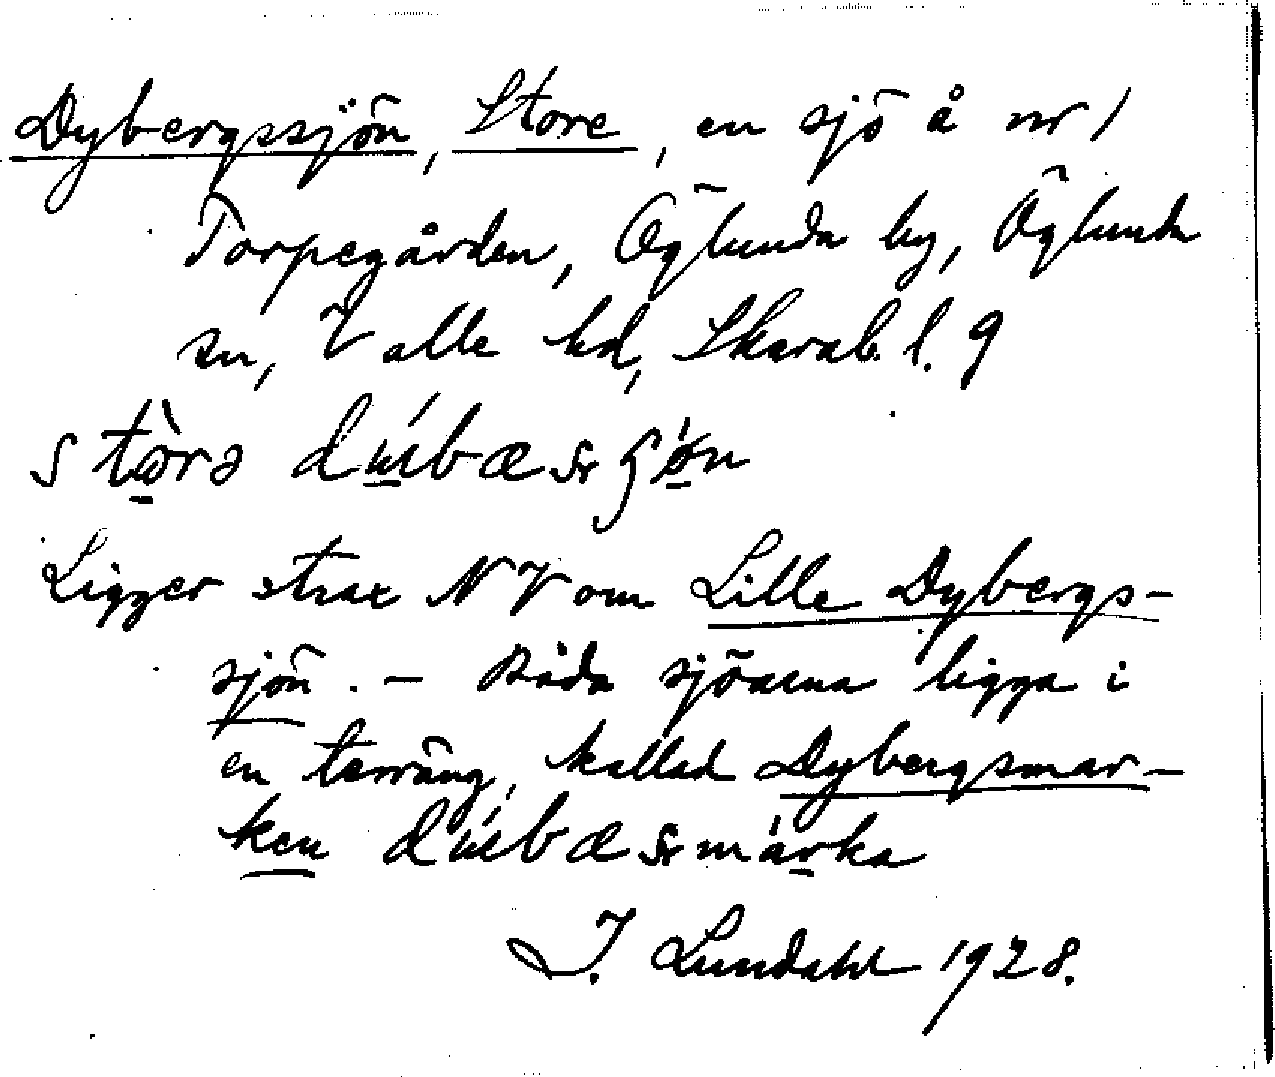 Dybergssjön, Store, en sjö å nr 1
Torpegården, Öglunda by, Öglunda
sn, Valle hd, Skarab. l. 9
Ligger strax NV om Lille Dybergs-
sjön. – Båda sjöarna ligga i
en terräng, kallad Dybergsmar-
ken
I. Lundahl 1928.